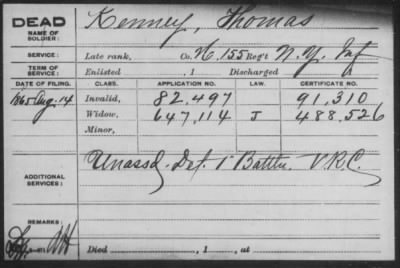 DEAD
NAME OF
SOLDIER:
Kenney, Thomas
SERVICE:
Late rank, Co. K, 155 Reg't N.Y. Inf
TERM OF
SERVICE:
Enlisted , 1 Discharged
DATE OF FILING. CLASS. APPLICATION NO. LAW. CERTIFICATE NO.
1865 Aug. 14 Invalid, 82,497 91,310
Widow, 647,114 J 488,526
Minor,
ADDITIONAL
SERVICES:
Unassd. Det. 1 Battn. V.R.C.
REMARKS:
Died , 1 , at